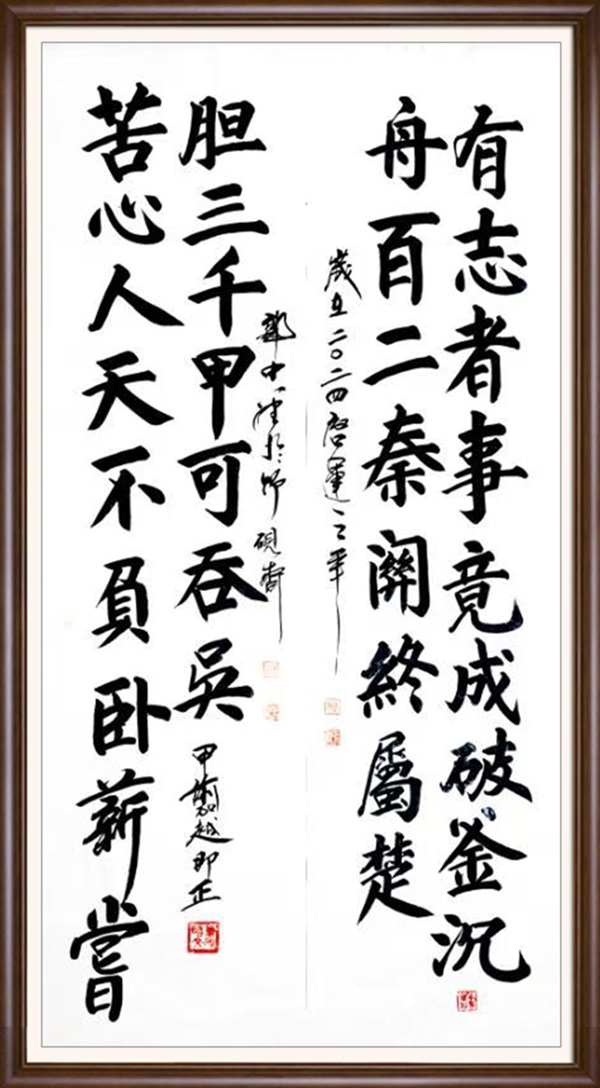 有志者事竟成破釜沉
舟百二秦關終屬楚
歲在二〇二四啓運之年
苦心人天不負卧薪嘗
胆三千甲可吞吳
甲 越即正
中 於 硯齋